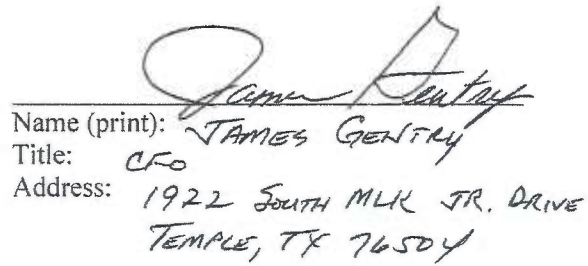 James Gentry
Name (print): JAMES GENTRY
Title: CFO
Address: 1922 SOUTH MLK JR. DRIVE
TEMPLE, TX 76504